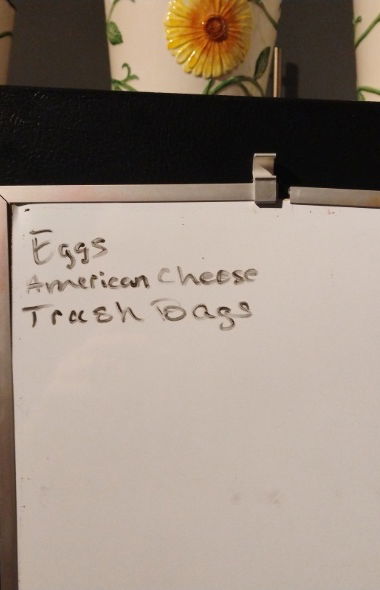 Eggs
American Cheese
Trash Bags